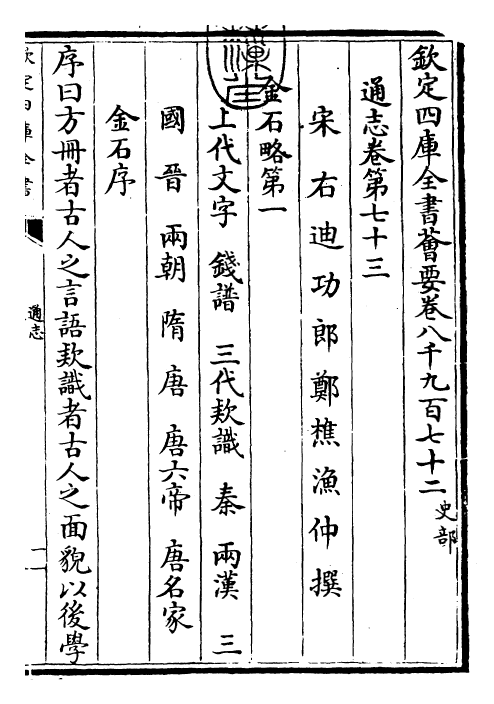 欽定四庫全書薈要卷八千九百七十二 史部
通志卷第七十三
宋右迪功郎鄭樵漁仲撰
金石略第一
上代文字 錢譜 三代欵識 秦 兩漢 三
國 晉 兩朝 隋 唐 唐六帝 唐名家
金石序
序曰方冊者古人之言語欵識者古人之面貌以後學
通志